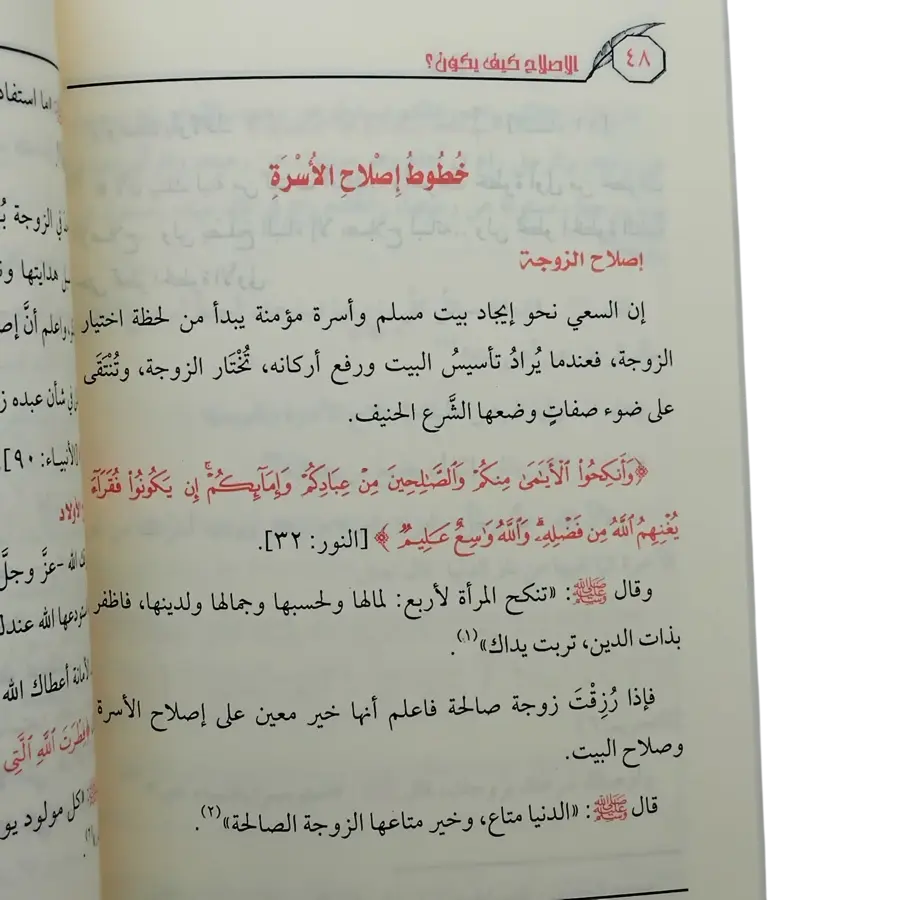 ٤٨
الإصلاح كيف يكون؟
خُطُوطُ إِصْلَاحِ الأُسْرَةِ
إصلاح الزوجة
إن السعي نحو إيجاد بيت مسلم وأسرة مؤمنة يبدأ من لحظة اختيار
الزوجة، فعندما يُرادُ تأسيسُ البيت ورفع أركانه، تُخْتَار الزوجة، وتُنْتَقَى
على ضوء صفاتٍ وضعها الشَّرع الحنيف.
﴿وَأَنكِحُوا۟ ٱلْأَيَـٰمَىٰ مِنكُمْ وَٱلصَّـٰلِحِينَ مِنْ عِبَادِكُمْ وَإِمَآئِكُمْ ۚ إِن يَكُونُوا۟ فُقَرَآءَ
يُغْنِهِمُ ٱللَّهُ مِن فَضْلِهِۦ ۗ وَٱللَّهُ وَٰسِعٌ عَلِيمٌ ﴾ [النور: ٣٢].
وقال ﷺ: «تنكح المرأة لأربع: لمالها ولحسبها وجمالها ولدينها، فاظفر
بذات الدين، تربت يداك»(١).
فإذا رُزِقْتَ زوجة صالحة فاعلم أنها خير معين على إصلاح الأسرة
وصلاح البيت.
قال ﷺ: «الدنيا متاع، وخير متاعها الزوجة الصالحة»(٢).
«ما استفاد
في الزوجة
هدايتها
واعلم أنَّ
في شأن عبده
الأنبياء: ٩٠]
الله -عزَّ وجلَّ
الله عندك
أعطاك الله
فِطْرَتَ ٱللَّهِ ٱلَّتِى
«كل مولود